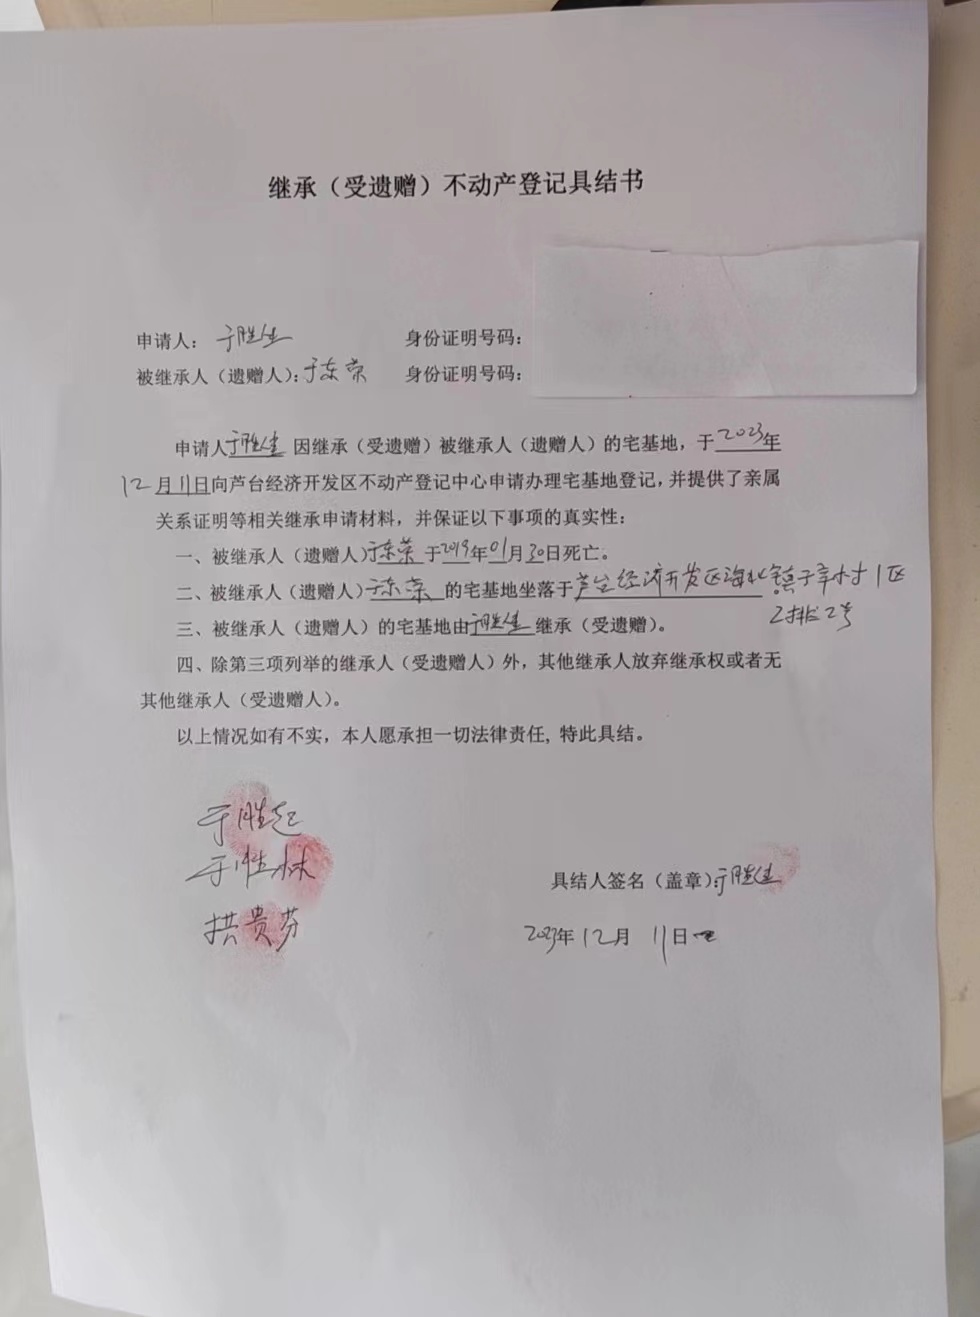 继承（受遗赠）不动产登记具结书
申请人：于胜生 身份证明号码：
被继承人（遗赠人）：于东荣 身份证明号码：
申请人于胜生因继承（受遗赠）被继承人（遗赠人）的宅基地，于2023年
12月11日向芦台经济开发区不动产登记中心申请办理宅基地登记，并提供了亲属
关系证明等相关继承申请材料，并保证以下事项的真实性：
一、被继承人（遗赠人）于东荣于2019年01月30日死亡。
二、被继承人（遗赠人）于东荣的宅基地坐落于芦台经济开发区海北镇于辛村1区
2排2号
三、被继承人（遗赠人）的宅基地由于胜生继承（受遗赠）。
四、除第三项列举的继承人（受遗赠人）外，其他继承人放弃继承权或者无
其他继承人（受遗赠人）。
以上情况如有不实，本人愿承担一切法律责任, 特此具结。
于胜起
于胜林
具结人签名（盖章）：于胜生
贵芬
2023年12月11日